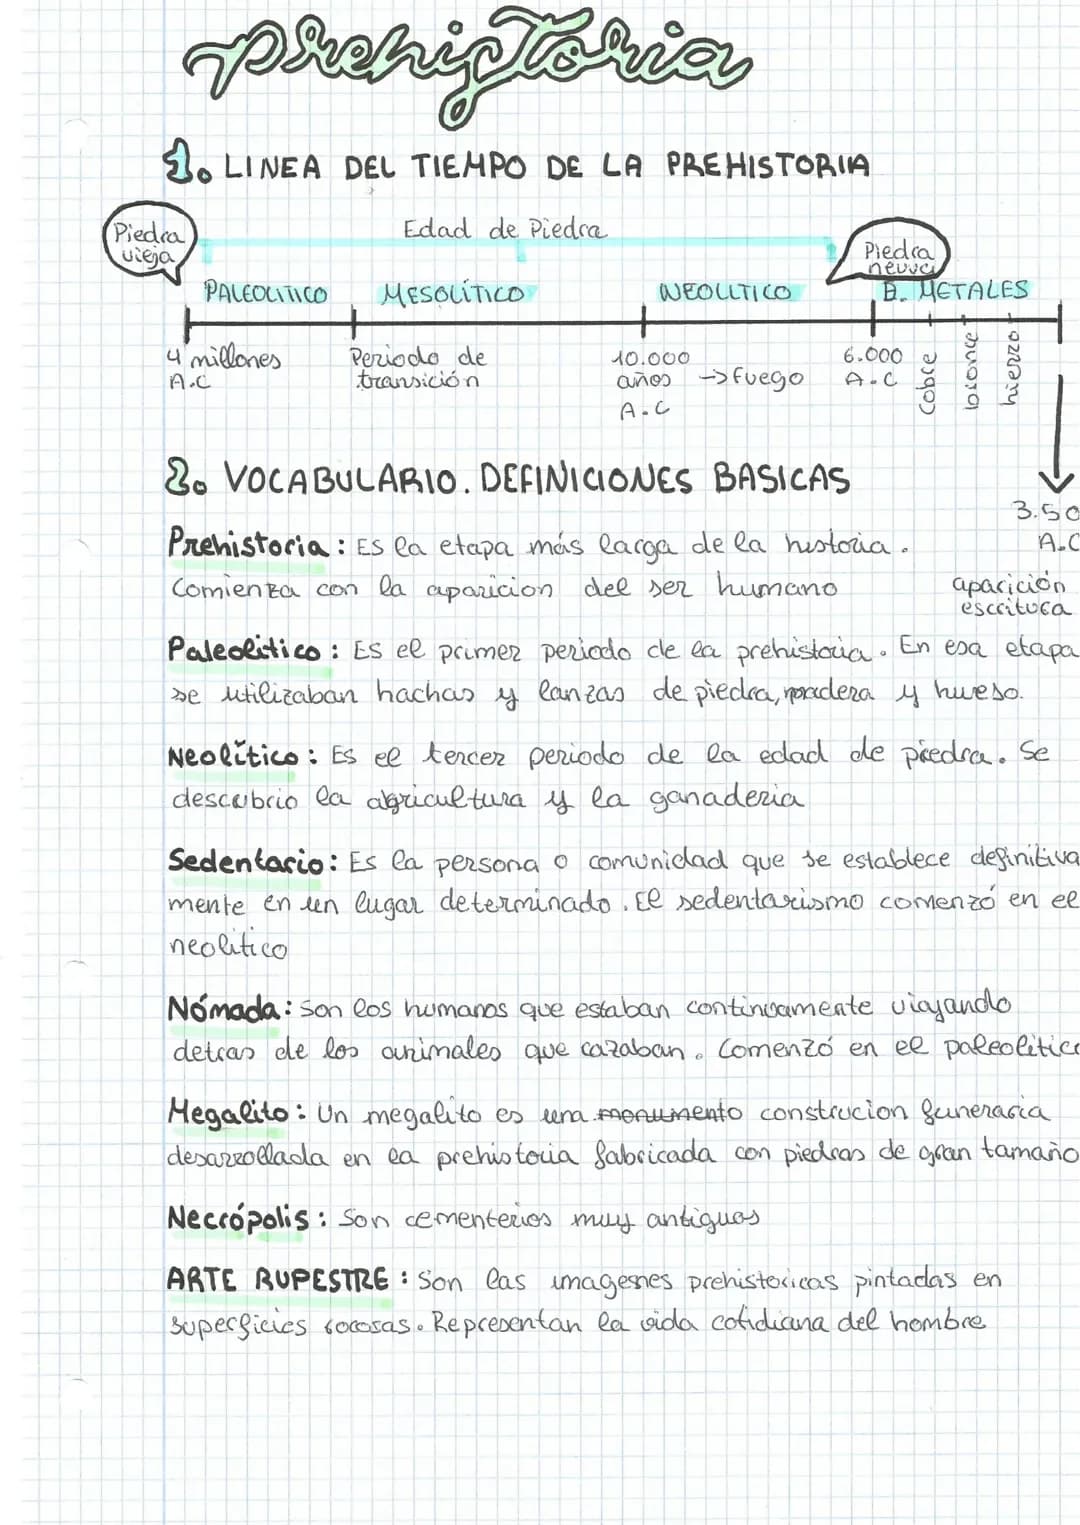 prehistoria
1. LINEA DEL TIEMPO DE LA PREHISTORIA
Piedra
vieja
Edad de Piedra
Piedra
neuva
PALEOLITICO MESOLÍTICO NEOLITICO B. METALES
4 millones
A.C
Periodo de
transición
10.000
años → fuego
A.C
6.000
A.C
cobre
bronce
hierro
3.50
A.C
aparición
escritura
2. VOCABULARIO. DEFINICIONES BASICAS
Prehistoria: Es la etapa más larga de la historia.
Comienza con la aparicion del ser humano
Paleolitico: Es el primer periodo de la prehistoria. En esa etapa
se utilizaban hachas y lanzas de piedra, madera y hueso.
Neolítico: Es el tercer periodo de la edad de piedra. Se
descubrio la agricultura y la ganaderia
Sedentario: Es la persona o comunidad que se establece definitiva
mente en un lugar determinado. El sedentarismo comenzó en el
neolitico
Nómada: Son los humanos que estaban continuamente viajando
detras de los animales que cazaban. Comenzó en el paleolitico
Megalito: Un megalito es una monumento construcion funeraria
desarrollada en la prehistoria fabricada con piedras de gran tamaño
Necrópolis: Son cementerios muy antiguos
ARTE RUPESTRE: Son las imagesnes prehistoricas pintadas en
superficies rocosas. Representan la vida cotidiana del hombre